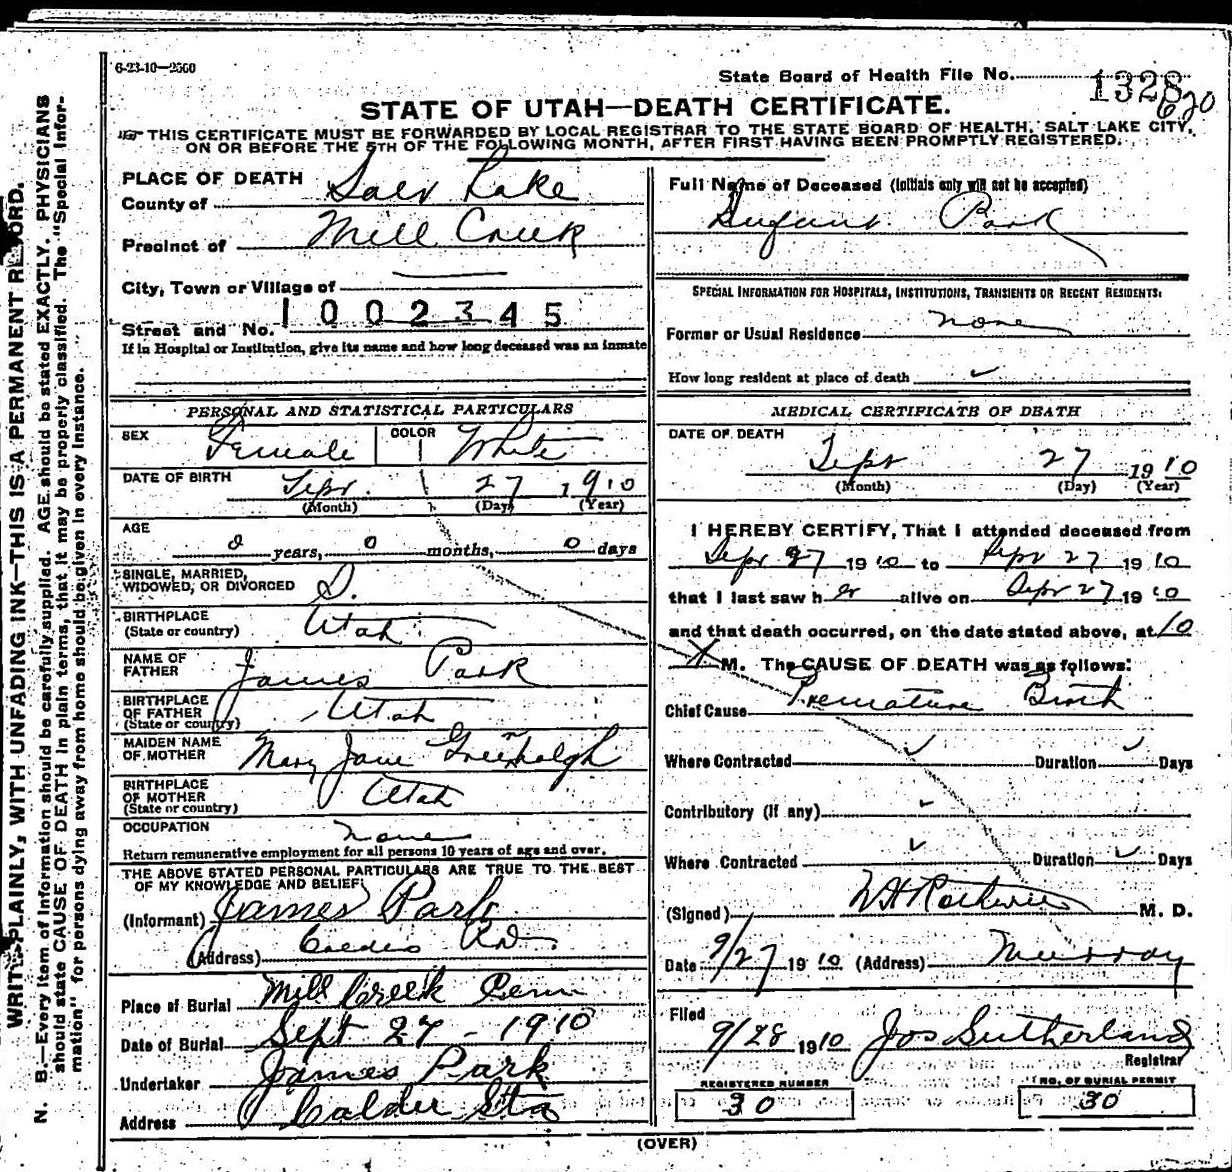 6-23-10—2500
State Board of Health File No. 1328
620
STATE OF UTAH—DEATH CERTIFICATE.
THIS CERTIFICATE MUST BE FORWARDED BY LOCAL REGISTRAR TO THE STATE BOARD OF HEALTH, SALT LAKE CITY,
ON OR BEFORE THE 5TH OF THE FOLLOWING MONTH, AFTER FIRST HAVING BEEN PROMPTLY REGISTERED.
PLACE OF DEATH
County of Salt Lake
Precinct of Mill Creek
City, Town or Village of
Street and No. 1002345
If in Hospital or Institution, give its name and how long deceased was an inmate
PERSONAL AND STATISTICAL PARTICULARS
SEX Female COLOR White
DATE OF BIRTH Sept. 27 1910
(Month) (Day) (Year)
AGE
0 years, 0 months, 0 days
SINGLE, MARRIED,
WIDOWED, OR DIVORCED S.
BIRTHPLACE
(State or country) Utah
NAME OF
FATHER James Park
BIRTHPLACE
OF FATHER
(State or country) Utah
MAIDEN NAME
OF MOTHER Mary Jane Greenhalgh
BIRTHPLACE
OF MOTHER
(State or country) Utah
OCCUPATION None
Return remunerative employment for all persons 10 years of age and over.
THE ABOVE STATED PERSONAL PARTICULARS ARE TRUE TO THE BEST
OF MY KNOWLEDGE AND BELIEF
(Informant) James Park
(Address)
Place of Burial Mill Creek Cem
Date of Burial Sept 27 - 1910
Undertaker James Park
Address Calder Sta
Full Name of Deceased (Initials only will not be accepted)
Infant Park
SPECIAL INFORMATION FOR HOSPITALS, INSTITUTIONS, TRANSIENTS OR RECENT RESIDENTS:
Former or Usual Residence none
How long resident at place of death ✓
MEDICAL CERTIFICATE OF DEATH
DATE OF DEATH
Sept 27 1910
(Month) (Day) (Year)
I HEREBY CERTIFY, That I attended deceased from
Sept 27 1910 to Sept 27 1910
that I last saw h er alive on Sept 27 1910
and that death occurred, on the date stated above, at 10
M. The CAUSE OF DEATH was as follows:
Chief Cause Premature Birth
Where Contracted ✓ Duration ✓ Days
Contributory (If any) ✓
Where Contracted ✓ Duration ✓ Days
(Signed) M. D.
Date 9/27 1910 (Address) Murray
Filed
9/28 1910 Jos Sutherland
Registrar
REGISTERED NUMBER
30
NO. OF BURIAL PERMIT
30
(OVER)
WRITE PLAINLY, WITH UNFADING INK—THIS IS A PERMANENT RECORD.
N. B.—Every item of information should be carefully supplied. AGE should be stated EXACTLY. PHYSICIANS
should state CAUSE OF DEATH in plain terms, that it may be properly classified. The "Special Infor-
mation" for persons dying away from home should be given in every instance.